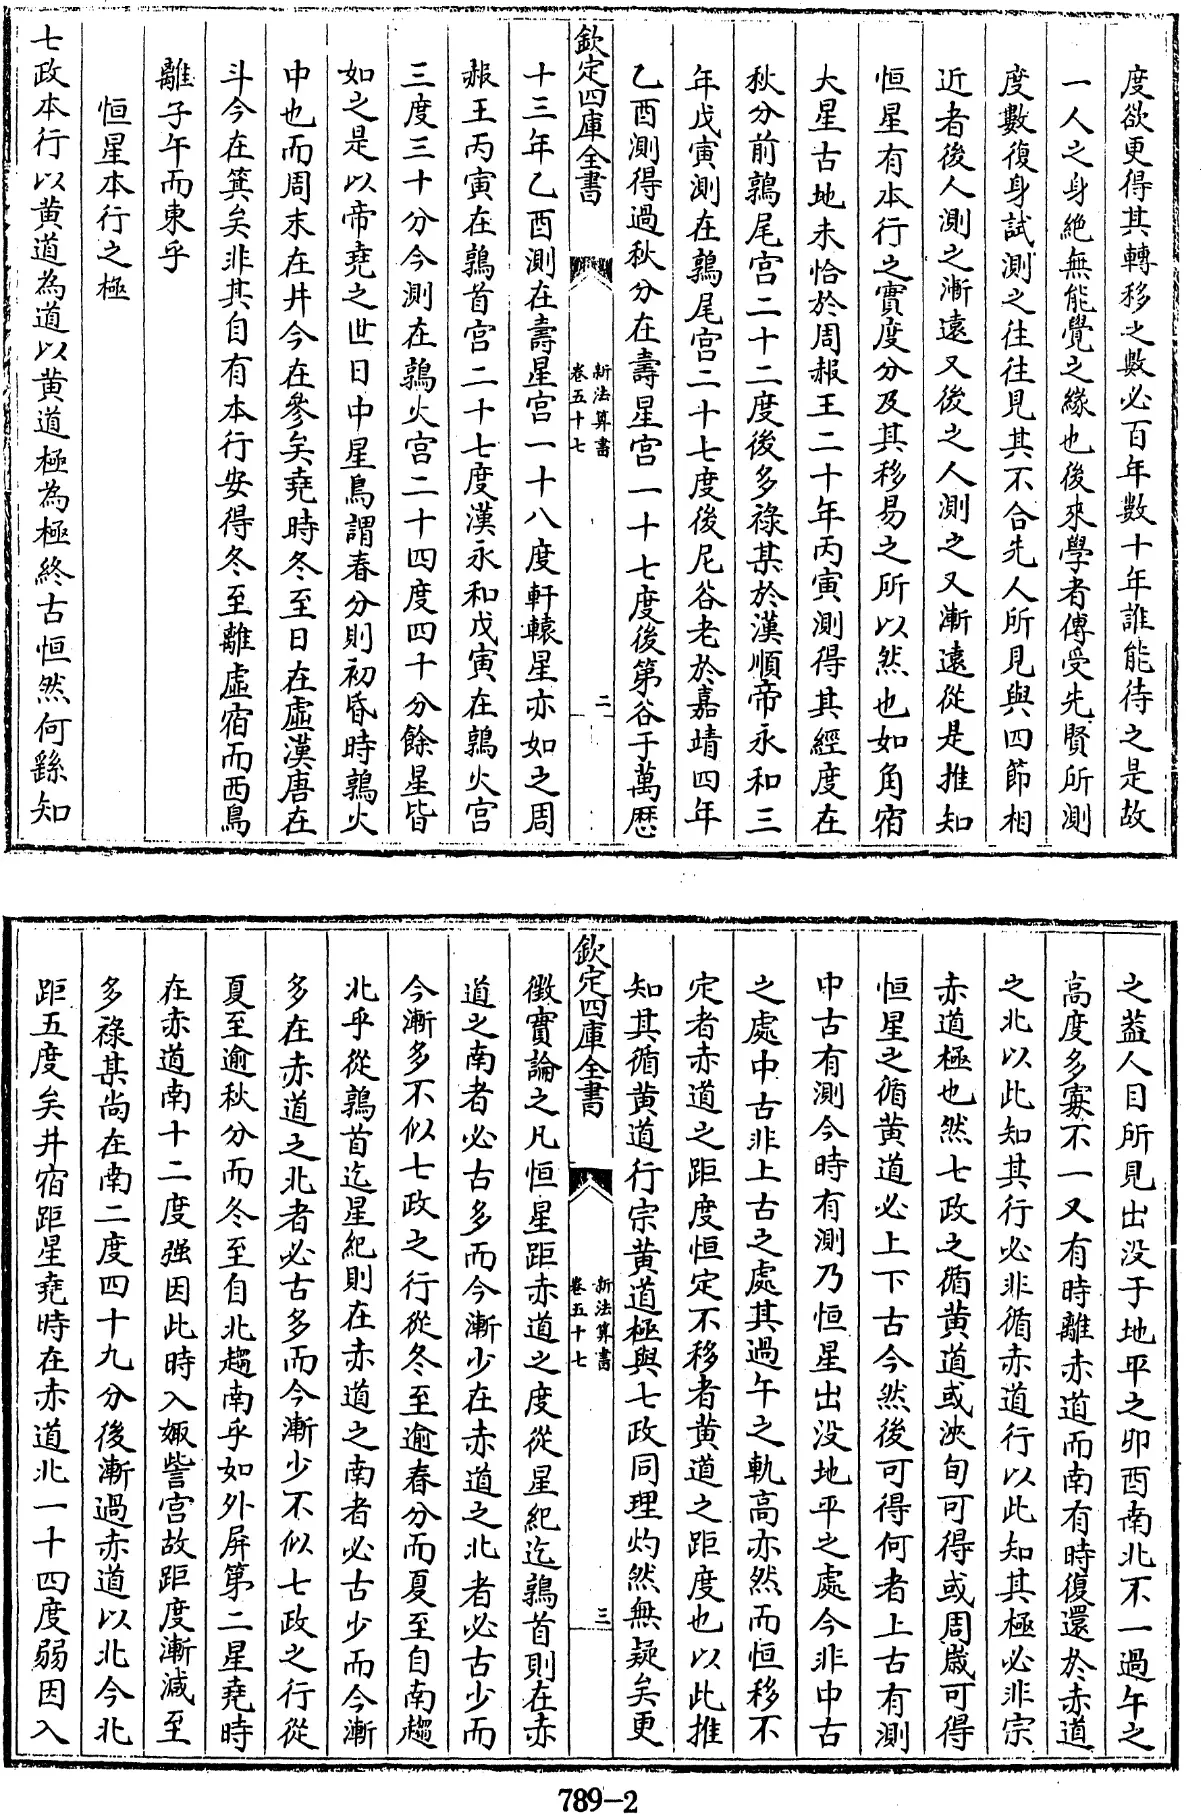 度欲更得其轉移之數必百年數十年誰能待之是故
一人之身絶無能覺之緣也後來學者傳受先賢所測
度數復身試測之往往見其不合先人所見與四節相
近者後人測之漸遠又後之人測之又漸遠從是推知
恒星有本行之實度分及其移易之所以然也如角宿
大星古地未恰於周赧王二十年丙寅測得其經度在
秋分前鶉尾宫二十二度後多祿某於漢順帝永和三
年戊寅測在鶉尾宫二十七度後尼谷老於嘉靖四年
乙酉測得過秋分在壽星宫一十七度後第谷于萬歴
欽定四庫全書
新法算書
卷五十七
二
十三年乙酉測在壽星宫一十八度軒轅星亦如之周
赧王丙寅在鶉首宫二十七度漢永和戊寅在鶉火宫
三度三十分今測在鶉火宫二十四度四十分餘星皆
如之是以帝堯之世日中星鳥謂春分則初昏時鶉火
中也而周末在井今在參矣堯時冬至日在虛漢唐在
斗今在箕矣非其自有本行安得冬至離虛宿而西鳥
離子午而東乎
恒星本行之極
七政本行以黄道為道以黄道極為極終古恒然何繇知
之葢人目所見出没于地平之卯酉南北不一過午之
高度多寡不一又有時離赤道而南有時復還於赤道
之北以此知其行必非循赤道行以此知其極必非宗
赤道極也然七政之循黄道或浹旬可得或周嵗可得
恒星之循黄道必上下古今然後可得何者上古有測
中古有測今時有測乃恒星出没地平之處今非中古
之處中古非上古之處其過午之軌高亦然而恒移不
定者赤道之距度恒定不移者黄道之距度也以此推
知其循黄道行宗黄道極與七政同理灼然無疑矣更
欽定四庫全書
新法算書
卷五十七
三
徵實論之凡恒星距赤道之度從星紀迄鶉首則在赤
道之南者必古多而今漸少在赤道之北者必古少而
今漸多不似七政之行從冬至逾春分而夏至自南趨
北乎從鶉首迄星紀則在赤道之南者必古少而今漸
多在赤道之北者必古多而今漸少不似七政之行從
夏至逾秋分而冬至自北趨南乎如外屏第二星堯時
在赤道南十二度强因此時入娵訾宫故距度漸減至
多祿某尚在南二度四十九分後漸過赤道以北今北
距五度矣井宿距星堯時在赤道北一十四度弱因入
789-2